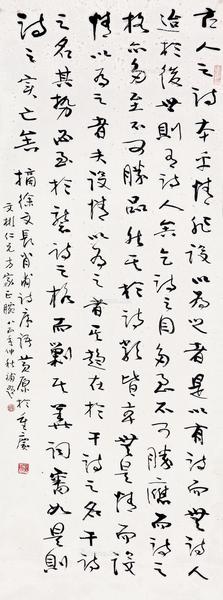 古人之詩本乎情非設以為之者是以有詩而無詩人
迨於後世則有詩人矣乞詩之目多至不可勝應而詩之
格亦多至不可勝品然其於詩類皆本無是情而設
情以為之者夫設情以為之者其趨在於干詩之名干詩
之名其勢必至於襲詩之格而剿其華詞審如是則
詩之實亡矣 摘徐文長肖甫詩序語 黃原於重慶
文彬仁兄方家正腕 年仲秋補